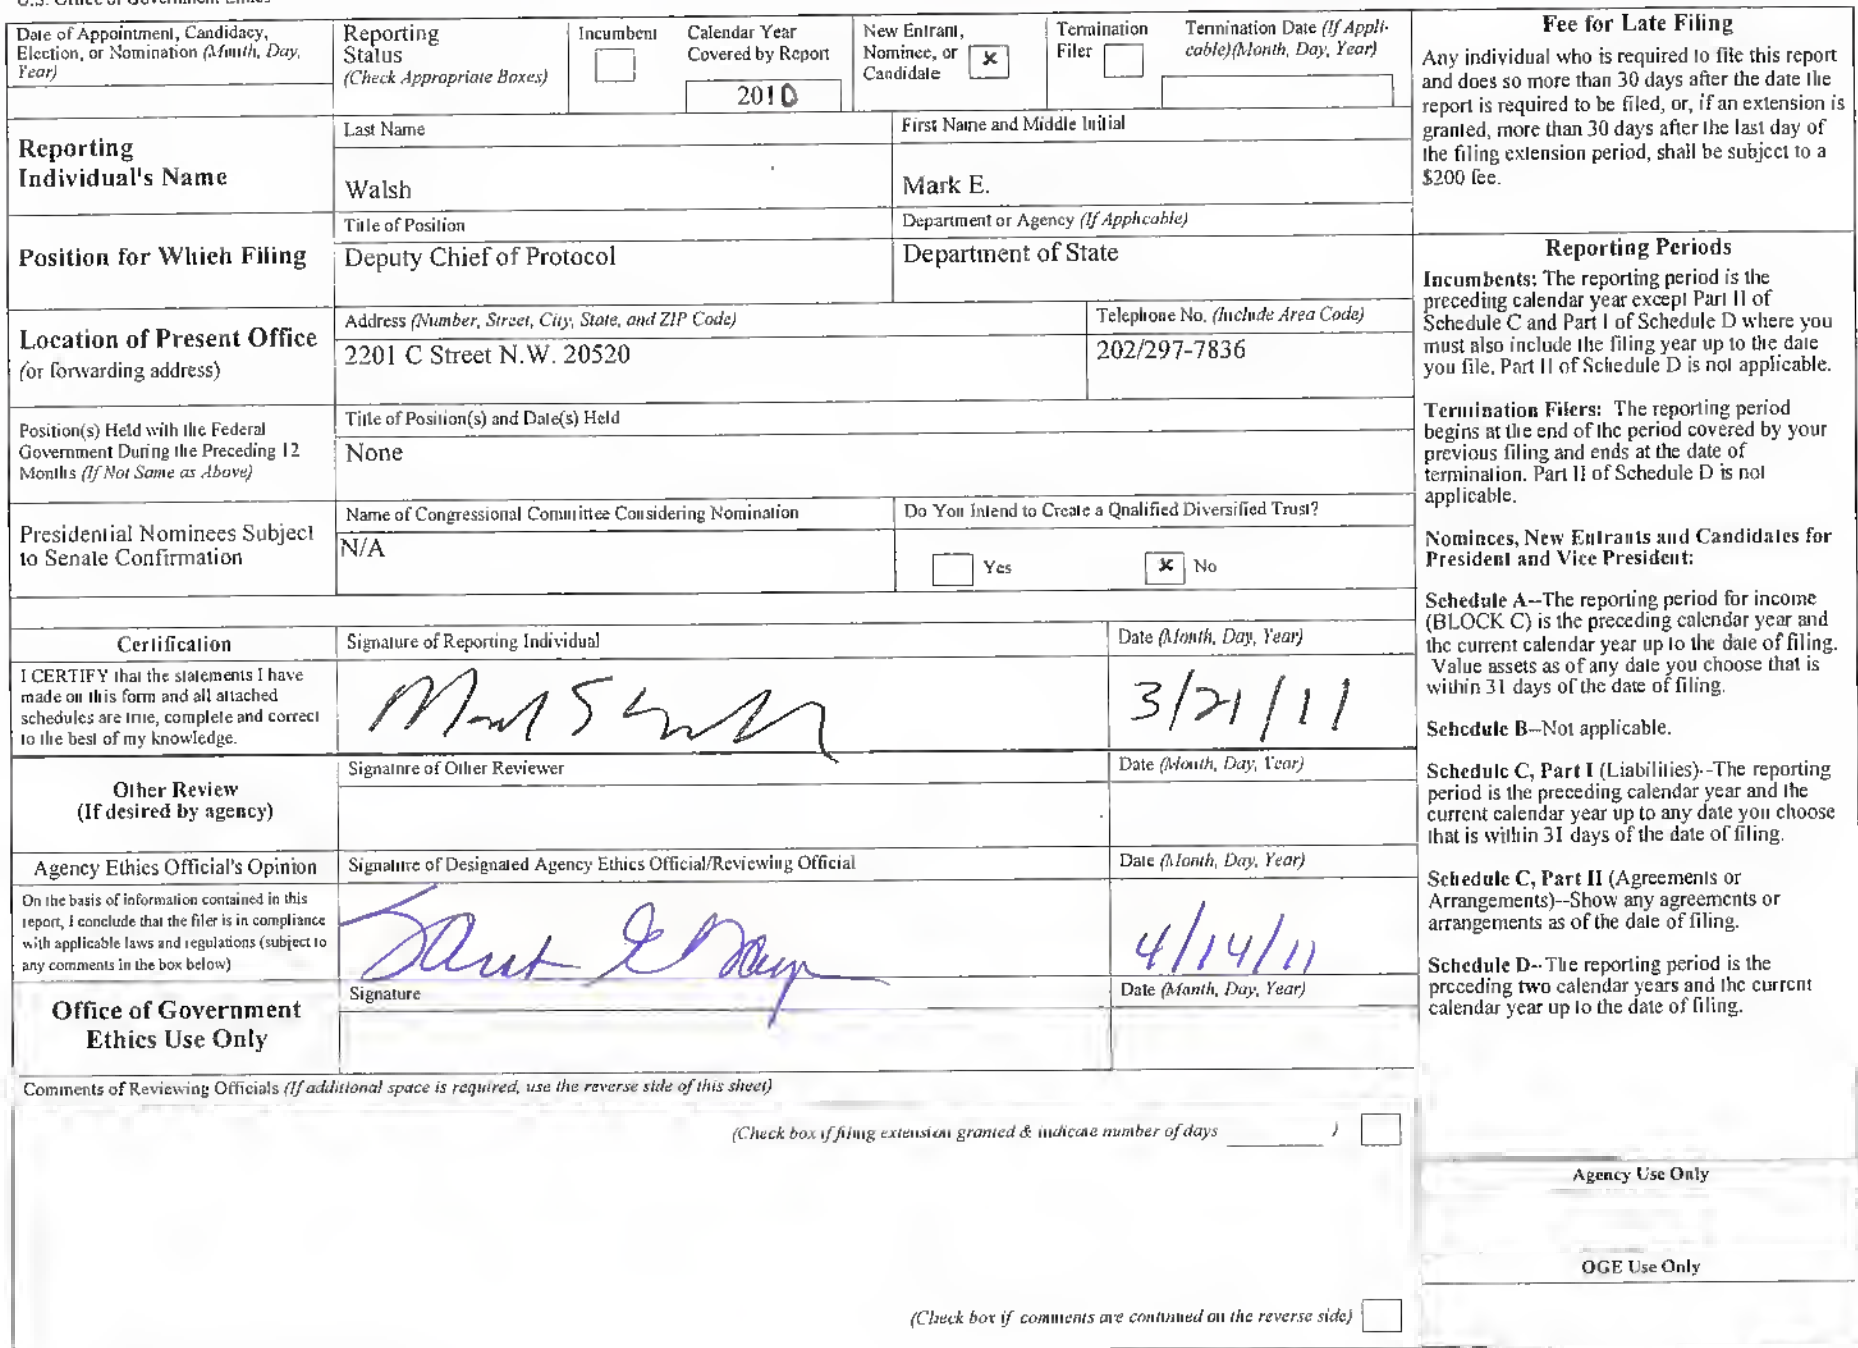 Date of Appointment, Candidacy,
Election, or Nomination (Month, Day,
Year)
Reporting
Status
(Check Appropriate Boxes)
Incumbent
Calendar Year
Covered by Report
2010
New Entrant,
Nominee, or
Candidate
x
Termination
Filer
Termination Date (If Appli-
cable)(Month, Day, Year)
Reporting
Individual's Name
Last Name
Walsh
First Name and Middle Initial
Mark E.
Position for Which Filing
Title of Position
Deputy Chief of Protocol
Department or Agency (If Applicable)
Department of State
Location of Present Office
(or forwarding address)
Address (Number, Street, City, State, and ZIP Code)
2201 C Street N.W. 20520
Telephone No. (Include Area Code)
202/297-7836
Position(s) Held with the Federal
Government During the Preceding 12
Months (If Not Same as Above)
Title of Position(s) and Date(s) Held
None
Presidential Nominees Subject
to Senate Confirmation
Name of Congressional Committee Considering Nomination
N/A
Do You Intend to Create a Qualified Diversified Trust?
Yes
x No
Certification
I CERTIFY that the statements I have
made on this form and all attached
schedules are true, complete and correct
to the best of my knowledge.
Signature of Reporting Individual
Date (Month, Day, Year)
3/21/11
Other Review
(If desired by agency)
Signature of Other Reviewer
Date (Month, Day, Year)
Agency Ethics Official's Opinion
On the basis of information contained in this
report, I conclude that the filer is in compliance
with applicable laws and regulations (subject to
any comments in the box below)
Signature of Designated Agency Ethics Official/Reviewing Official
Date (Month, Day, Year)
4/14/11
Office of Government
Ethics Use Only
Signature
Date (Month, Day, Year)
Comments of Reviewing Officials (If additional space is required, use the reverse side of this sheet)
(Check box if filing extension granted & indicate number of days )
(Check box if comments are continued on the reverse side)
Fee for Late Filing
Any individual who is required to file this report
and does so more than 30 days after the date the
report is required to be filed, or, if an extension is
granted, more than 30 days after the last day of
the filing extension period, shall be subject to a
$200 fee.
Reporting Periods
Incumbents: The reporting period is the
preceding calendar year except Part II of
Schedule C and Part I of Schedule D where you
must also include the filing year up to the date
you file. Part II of Schedule D is not applicable.
Termination Filers: The reporting period
begins at the end of the period covered by your
previous filing and ends at the date of
termination. Part II of Schedule D is not
applicable.
Nominees, New Entrants and Candidates for
President and Vice President:
Schedule A--The reporting period for income
(BLOCK C) is the preceding calendar year and
the current calendar year up to the date of filing.
Value assets as of any date you choose that is
within 31 days of the date of filing.
Schedule B--Not applicable.
Schedule C, Part I (Liabilities)--The reporting
period is the preceding calendar year and the
current calendar year up to any date you choose
that is within 31 days of the date of filing.
Schedule C, Part II (Agreements or
Arrangements)--Show any agreements or
arrangements as of the date of filing.
Schedule D--The reporting period is the
preceding two calendar years and the current
calendar year up to the date of filing.
Agency Use Only
OGE Use Only